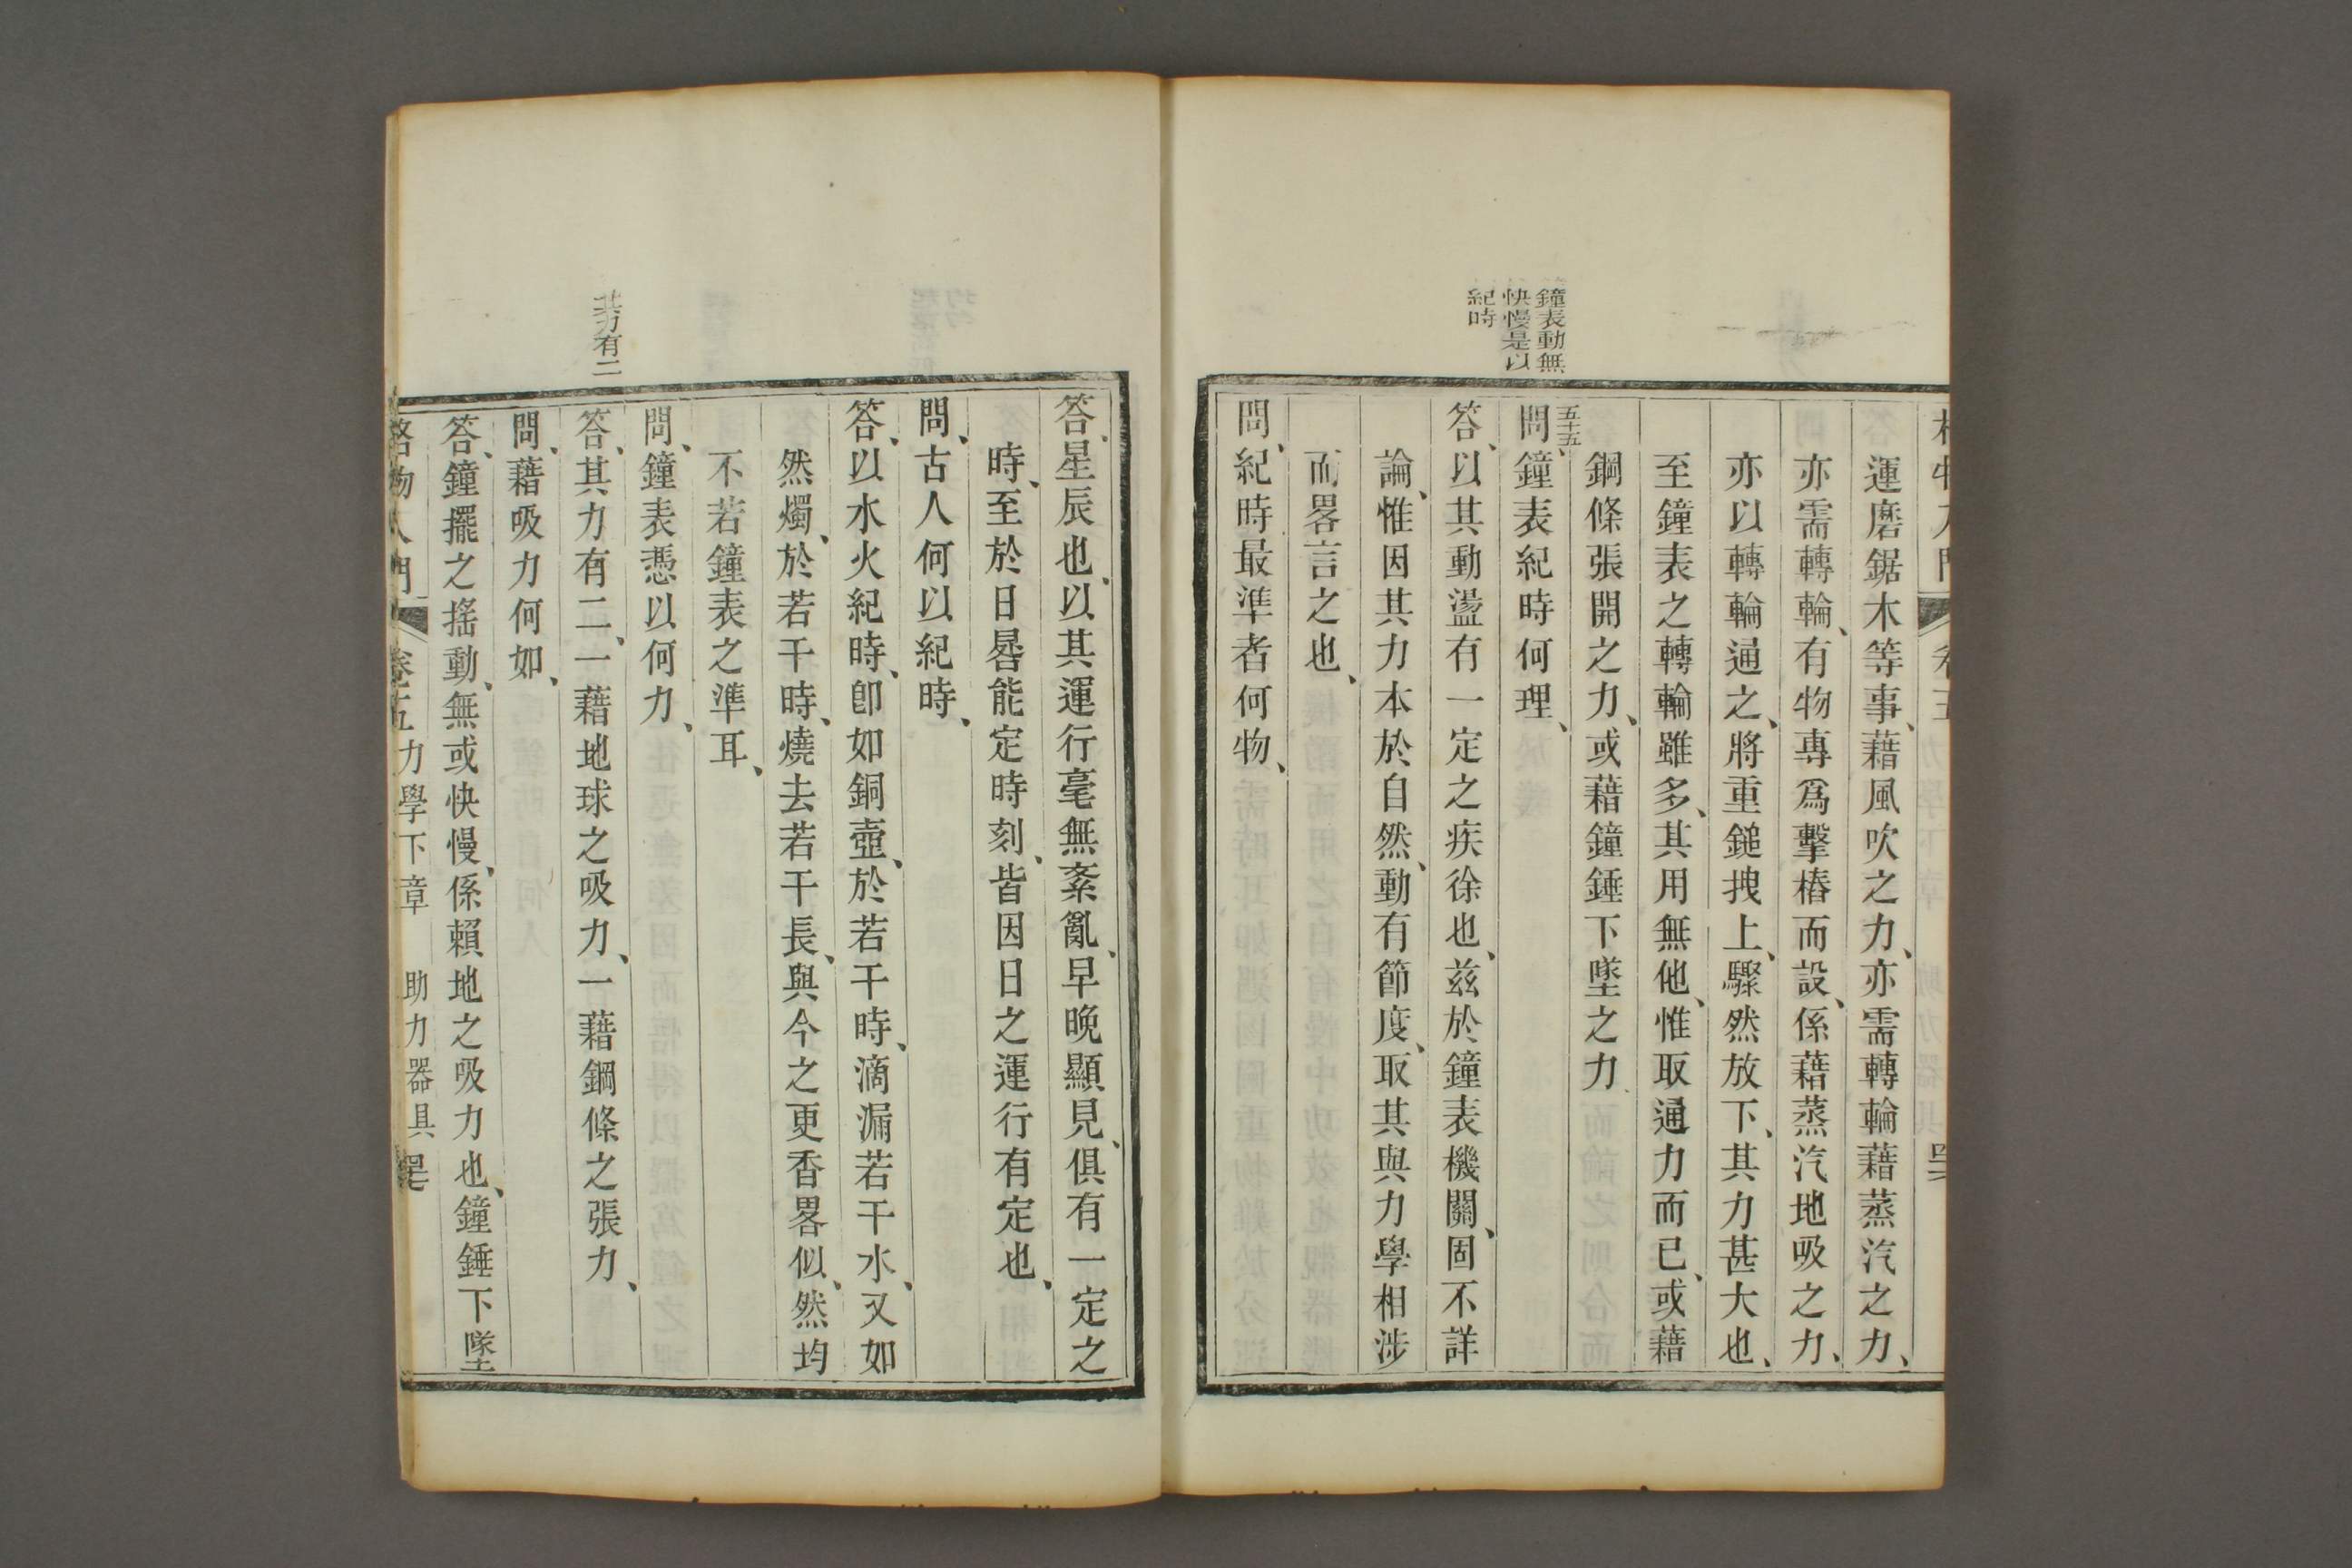 運磨鋸木等事、藉風吹之力、亦需轉輪藉蒸汽之力、
亦需轉輪、有物專爲擊樁而設、係藉蒸汽地吸之力、
亦以轉輪通之、將重鎚拽上、驟然放下、其力甚大也、
至鐘表之轉輪雖多、其用無他、惟取通力而已、或藉
鋼條張開之力、或藉鐘錘下墜之力
鐘表動無
快慢是以
紀時
五十五
問、鐘表紀時何理、
答、以其動盪有一定之疾徐也、茲於鐘表機關、固不詳
論、惟因其力本於自然、動有節度、取其與力學相涉
而畧言之也、
問、紀時最準者何物、
答、星辰也、以其運行毫無紊亂、早晚顯見、俱有一定之
時、至於日晷能定時刻、皆因日之運行有定也、
問、古人何以紀時、
答、以水火紀時、卽如銅壺、於若干時、滴漏若干水、又如
然燭、於若干時、燒去若干長、與今之更香畧似、然均
不若鐘表之準耳、
問、鐘表憑以何力、
其力有二
答、其力有二、一藉地球之吸力、一藉鋼條之張力、
問、藉吸力何如、
答、鐘擺之搖動、無或快慢、係賴地之吸力也、鐘錘下墜
格物入門 卷五 力學下章 助力器具